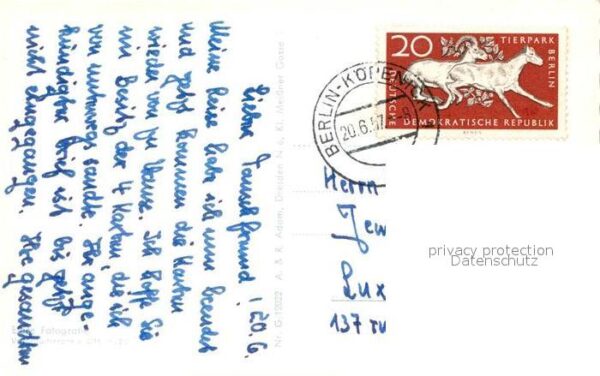 Lieber Tauschfreund! 20.6.
Meine Reise habe ich nun beendet
und jetzt kommen die Karten
wieder von zu Hause. Ich hoffe Sie
im Besitz der 4 Karten, die ich
von unterwegs sandte. Ihr ange-
kündigter Brief ist bis jetzt
nicht eingegangen. Ihre gesandten
Echte Fotografie
Nr. G 10022 A. & R. Adam, Dresden N 6, Kl. Meißner Gasse
20 TIERPARK BERLIN
DEUTSCHE DEMOKRATISCHE REPUBLIK
BERLIN-KÖPENICK
20.6.57
Herrn
Jew
Lux
137 ru
privacy protection
Datenschutz